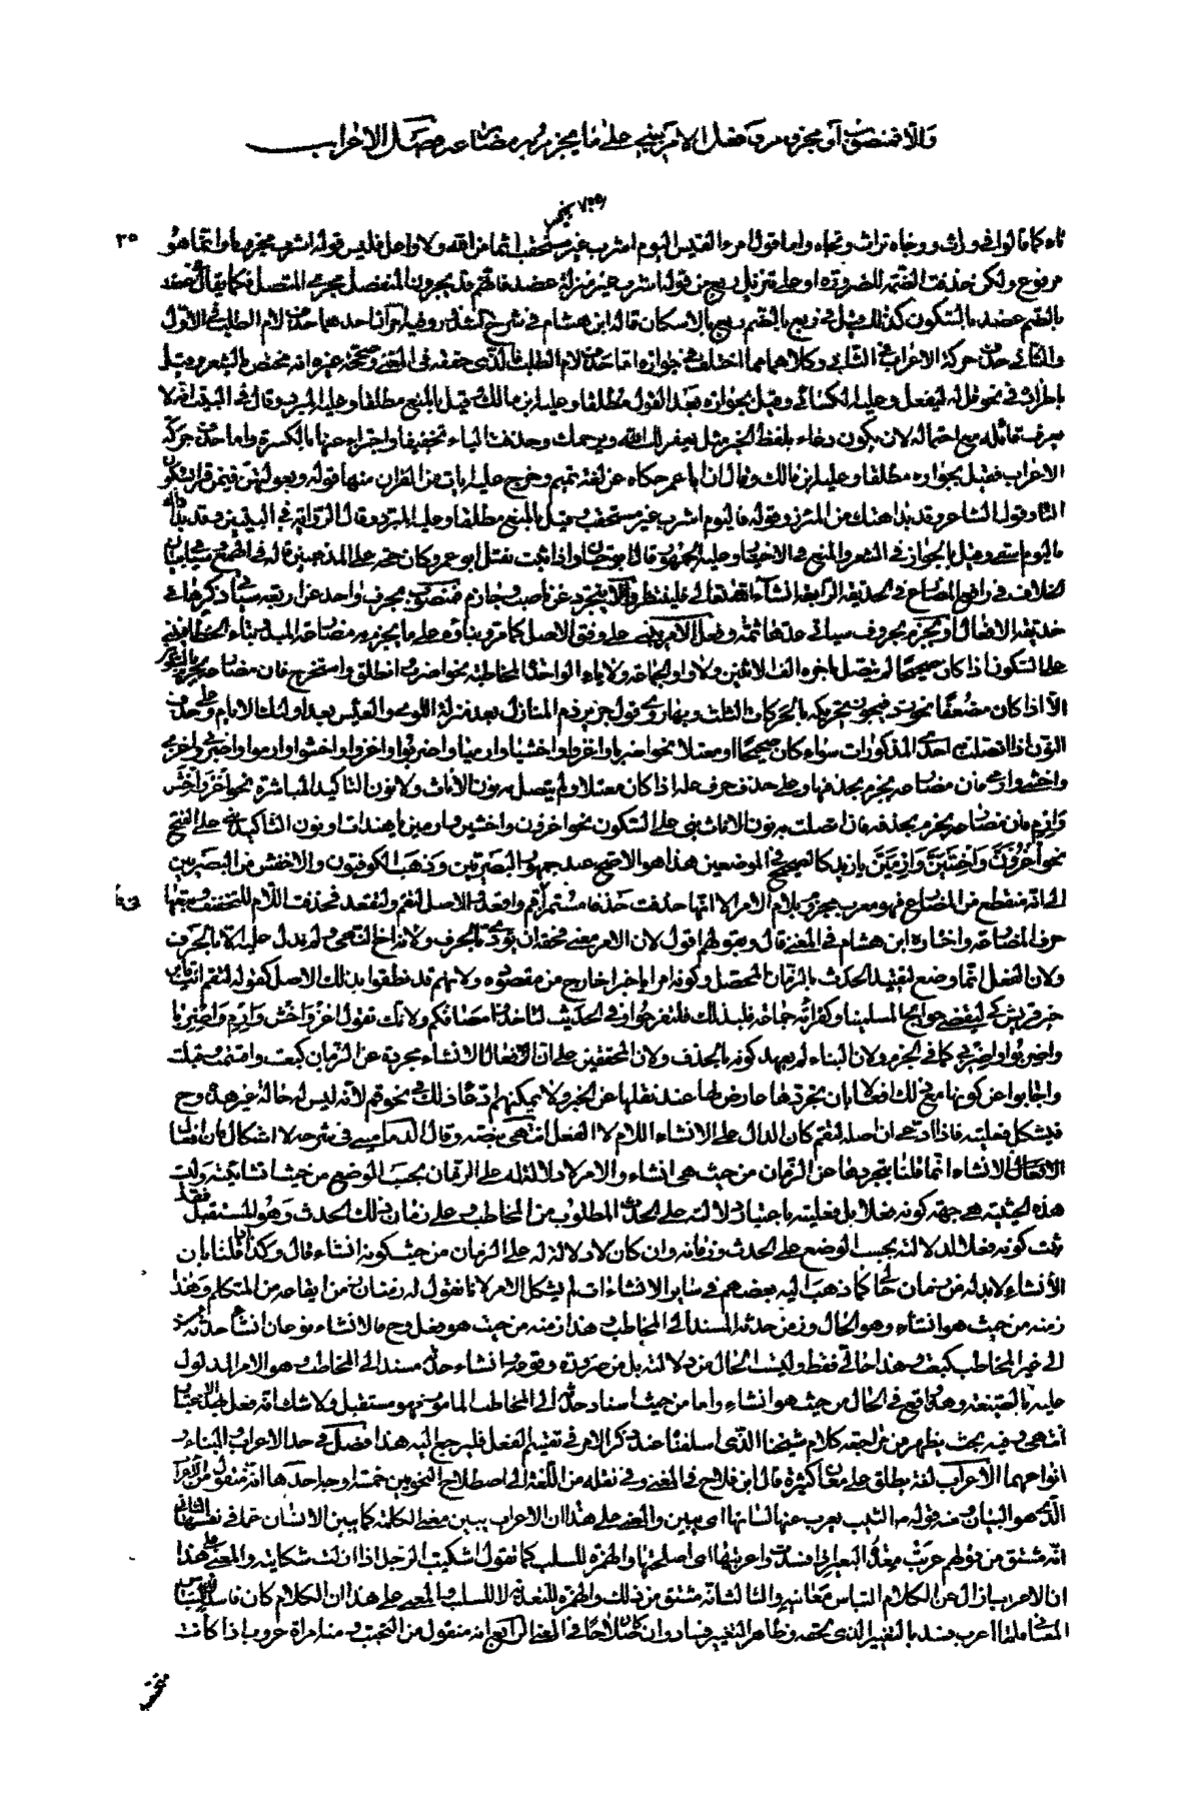 والا فمنصوب أو مجزوم وفعل الامر يبنى على ما يجزم به مضارعه فصل الاعراب
٢٥
تاء كما قالوا في وراث ووجاه تراث وتجاه واما قول امرء القيس اليوم اشرب غير مستحقب اثما من الله ولا واغل فليس قوله اشرب مجزوما وانما هو
مرفوع ولكن حذفت الضمة للضرورة او على تنزيل ربغ من قوله اشرب غير منزلة عضد فانهم قد يجرون المنفصل مجرى المتصل فكما يقال في عضد
بالضم عضد بالسكون كذلك قيل في ربغ بالضم ربغ بالاسكان قاله ابن هشام في شرح الشذور وفيه امران احدهما حذف لام الطلب في الاول
والثاني حذف حركة الاعراب في الثاني وكلاهما مما اختلف في جوازه اما حذف لام الطلب فالذي حققه في المغني وصححه غيره انه مختص بالشعر وقيل
باطراده في نحو قل له ليفعل وعليه الكسائي وقيل بجوازه بعد القول مطلقا وعليه ابن مالك وقيل بالمنع مطلقا وعليه المبرد وقال في البيت انه لا
يعرف قائله مع احتماله لان يكون دعاء بلفظ الخبر مثل يغفر الله لك ويرحمك وحذفت الياء تخفيفا واجتزاء عنها بالكسرة واما حذف حركة
الاعراب فقيل بجوازه مطلقا وعليه ابن مالك وقال ان ابا عمرو حكاه عن لغة تميم وخرج عليه ايات من القران منها قوله وبعولتهن فيمن قرا بسكون
التاء وقول الشاعر وقد بدا هنك من المئزر وقوله فاليوم اشرب غير مستحقب وقيل بالمنع مطلقا وعليه المبرد وقال الرواية في البيتين وقد بدا ذاك
فاليوم اسقى وقيل بالجواز في الشعر والمنع في الاختيار وعليه الجمهور قال ابو حيان واذا ثبت نقل ابو عمرو كان حجة على المذهبين قاله في الهمع سيأتي بيان
الخلاف في رافع المضارع في الحديقة الرابعة انشاء الله تعالى فلينتظر والا يتجرد عن ناصب وجازم فمنصوب بحرف واحد من اربعة سيأتي ذكرها في
حديقة الافعال او مجزم بحروف سيأتي عدتها ثمة وفعل الامر يبنى على وفق الاصل كما مر وبناؤه على ما يجزم به مضارعه المبدو بتاء الخطاب فيبنى
على السكون اذا كان صحيحا لم يتصل باخره الف الاثنين ولا واو الجماعة ولا ياء الواحدة المخاطبة نحو اضرب وانطلق واستخرج فان مضارعه يجزم بالسكون
الا اذا كان مضعفا نحو ذم فيجوز تحريكه بالحركات الثلث وبها روي قول جرير ذم المنازل بعد منزلة اللوى والعيش بعد اولئك الايام وعلى حذف
النون اذا اتصلت به احدى المذكورات سواء كان صحيحا او معتلا نحو اضربا واغزوا واخشيا وارميا واضربوا واغزوا واخشوا وارموا واضربي واغزي
واخشي وارمي فان مضارعه يجزم بحذفها وعلى حذف حرف علة اذا كان معتلا ولم يتصل به نون الاناث ولا نون التاكيد المباشرة نحو اغز واخش
وارم فان مضارعه يجزم بحذفه فان اتصلت به نون الاناث بني على السكون نحو اغزون واخشين وارمين يا هندات او نون التاكيد بني على الفتح
نحو اغزون واخشين وارمين يا زيد كالصحيح في الموضعين هذا هو الاصح عند جمهور البصريين وذهب الكوفيون والاخفش من البصريين
الى انه مقتطع من المضارع فهو معرب مجزوم بلام الامر الا انها حذفت حذفا مستمرا في قم واقعد والاصل لتقم ولتقعد فحذفت اللام للتخفيف وتبعها
حرف المضارعة واختاره ابن هشام في المغني قال وبقولهم اقول لان الامر معنى فحقه ان يؤدى بالحرف ولانه اخ النهي ولم يدل عليه الا بالحرف
ولان الفعل انما وضع لتقييد الحدث بالزمان المحصل وكونه امرا او خبرا خارج من مقصوده ولانهم قد نطقوا بذلك الاصل كقوله لتقم انت يا ابن
خير قريش كي لتقضي حوائج المسلمينا وكقراءة جماعة فبذلك فلتفرحوا وفي الحديث لتاخذوا مصافكم ولانك تقول اغز واخش وارم واضربا
واضربوا واضربي كما في الجزم ولان البناء لم يعهد كونه بالحذف ولان المحققين على ان الافعال الانشاء مجردة عن الزمان كبعت واقسمت وقبلت
واجابوا عن كونها مع ذلك افعالا بان تجردها عارض لها عند نقلها عن الخبر ولا يمكنهم ادعاء ذلك في نحو قم لانه ليس له حالة غير هذه وح
فيشكل فعليته فاذا ادعى ان اصله لتقم كان الدال على الانشاء اللام لا الفعل انتهى بنصه وقال الدماميني في شرحه لا اشكال فان
الافعال الانشاء انما قلنا بتجردها عن الزمان من حيث هي انشاء والامر لا دلالة له على الزمان بحسب الوضع من حيث انشائيته وليست
هذه الحيثية هي جهة كونه فعلا بل فعليته باعتبار دلالته على الحدث المطلوب من المخاطب وعلى زمان ذلك الحدث وهو المستقبل فقد
ثبت كونه فعلا لدلالته بحسب الوضع على الحدث وزمانه وان كان لا دلالة له على الزمان من حيث كونه انشاء قال وكذا ان قلنا بان
الانشاء لابد له من زمان حال كما ذهب اليه بعضهم في سائر الانشاءات لم يشكل الامر لانا نقول له زمنان زمن ايقاعه من المتكلم وهذا
زمنه من حيث هو انشاء وهو الحال وزمن حدثه المسند الى المخاطب وهذا زمنه من حيث هو فعل وح فالانشاء نوعان انشاء حدثه
الى غير المخاطب كبعت وهذا حالي فقط وليست الحال من دلالته بل من ضرورة وقوعه وانشاء حدث مسند الى المخاطب وهو الامر المدلول
عليه بالصيغة وهذا واقع في الحال من حيث هو انشاء واما من حيث اسناد حدثه الى المخاطب المامور فهو مستقبل ولا شك انه فعل بهذا الاعتبار
انتهى وفيه بحث يظهر من مراجعة كلام شيخنا الذي اسلفنا عند ذكر الامر في تقسيم الفعل فليرجع اليه هذا فصل في حد الاعراب والبناء و
انواعهما الاعراب لغة يطلق على معان كثيرة قال ابن فلاح في المغني وفي نقله من اللغة الى اصطلاح النحويين خمسة اوجه احدها انه منقول من الاعراب
الذي هو البيان ومنه قوله الثيب يعرب عنها لسانها اى يبين والمعنى على هذا ان الاعراب يبين معنى الكلمة كما يبين الانسان عما في نفسه الثاني
انه مشتق من قولهم عربت معدة البعير اذا فسدت واعربتها اى اصلحتها والهمزة للسلب كما تقول اشكيت الرجل اذا ازلت شكايته والمعنى على هذا
ان الاعراب ازال عن الكلام التباس معانيه والثالث انه مشتق من ذلك والهمزة للتعدية لا للسلب والمعنى على هذا ان الكلام كان فاسدا لالتباس
المعاني فلما اعرب فسد بالتغيير الذي لحقه وظاهر التغيير فساد وان كان صلاحا في المعنى الرابع انه منقول من التحبب ومنه امراة عروب اذا كانت